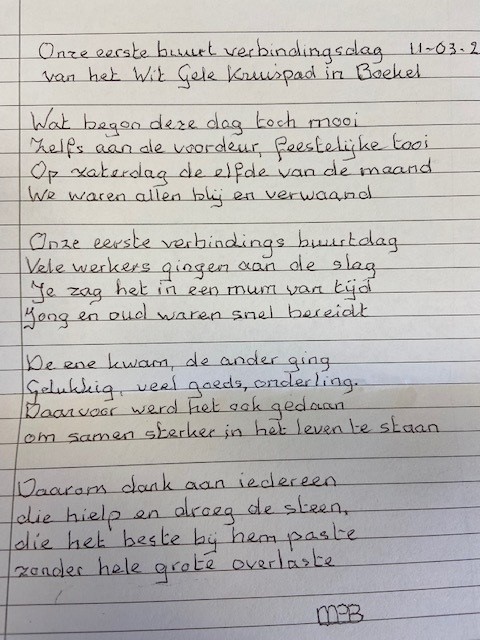 Onze eerste buurt verbindingsdag 11-03-2
van het Wit Gele Kruispad in Boekel
Wat begon deze dag toch mooi
Zelfs aan de voordeur, feestelijke tooi
Op zaterdag de elfde van de maand
We waren allen blij en verwaand
Onze eerste verbindings buurtdag
Vele werkers gingen aan de slag
Je zag het in een mum van tijd
Jong en oud waren snel bereidt
De ene kwam, de ander ging
Gelukkig, veel goeds, onderling.
Daarvoor werd het ook gedaan
om samen sterker in het leven te staan
Daarom dank aan iedereen
die hielp en droeg de steen,
die het beste bij hem paste
zonder hele grote overlaste